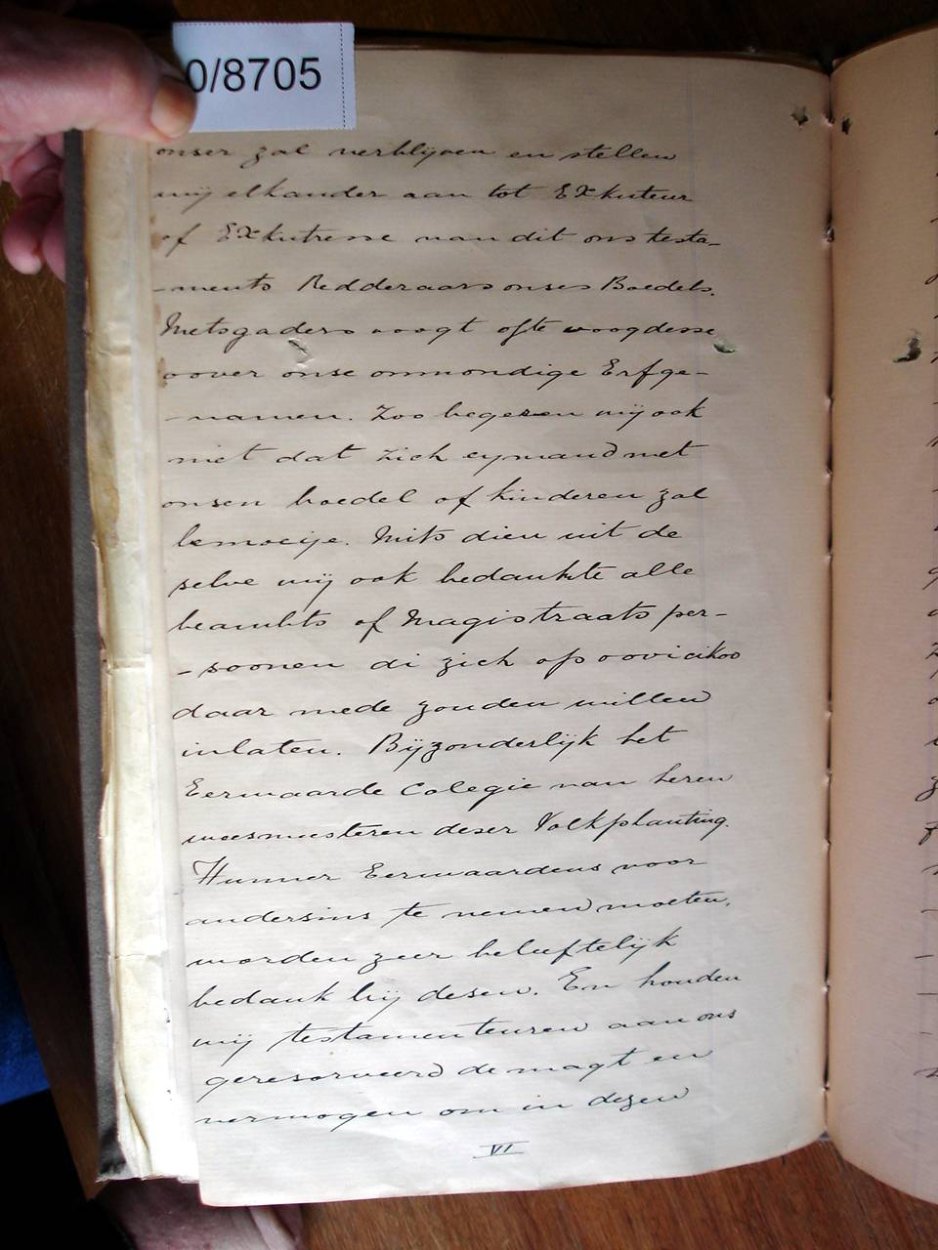 0/8705
onser zal verblijven en stellen
wij elkander aan tot EXkuteur
of EXkutresse van dit ons testa-
-ments Redderaars onses Boedels.
Metsgaders voogt ofte voogdesse
oover onse onmondige Erfge-
-namen. Zoo begeren wij ook
niet dat zich eymand met
onsen boedel of kinderen zal
bemoeije. Mits dien uit de
selve wij ook bedankte alle
beambts of Magistraats per-
-soonen di zich op
daar mede zouden willen
inlaten. Bijzonderlijk het
Eerwaarde Colegie van heren
weesmeesteren deser Volkplanting.
Hunner Eerwaardens voor
andersins te nemen moeten,
worden zeer beleeftelijk
bedank bij desen. En houden
wij testamenteuren aan ons
geresorveerd de magt en
vermogen om in dezen
VI